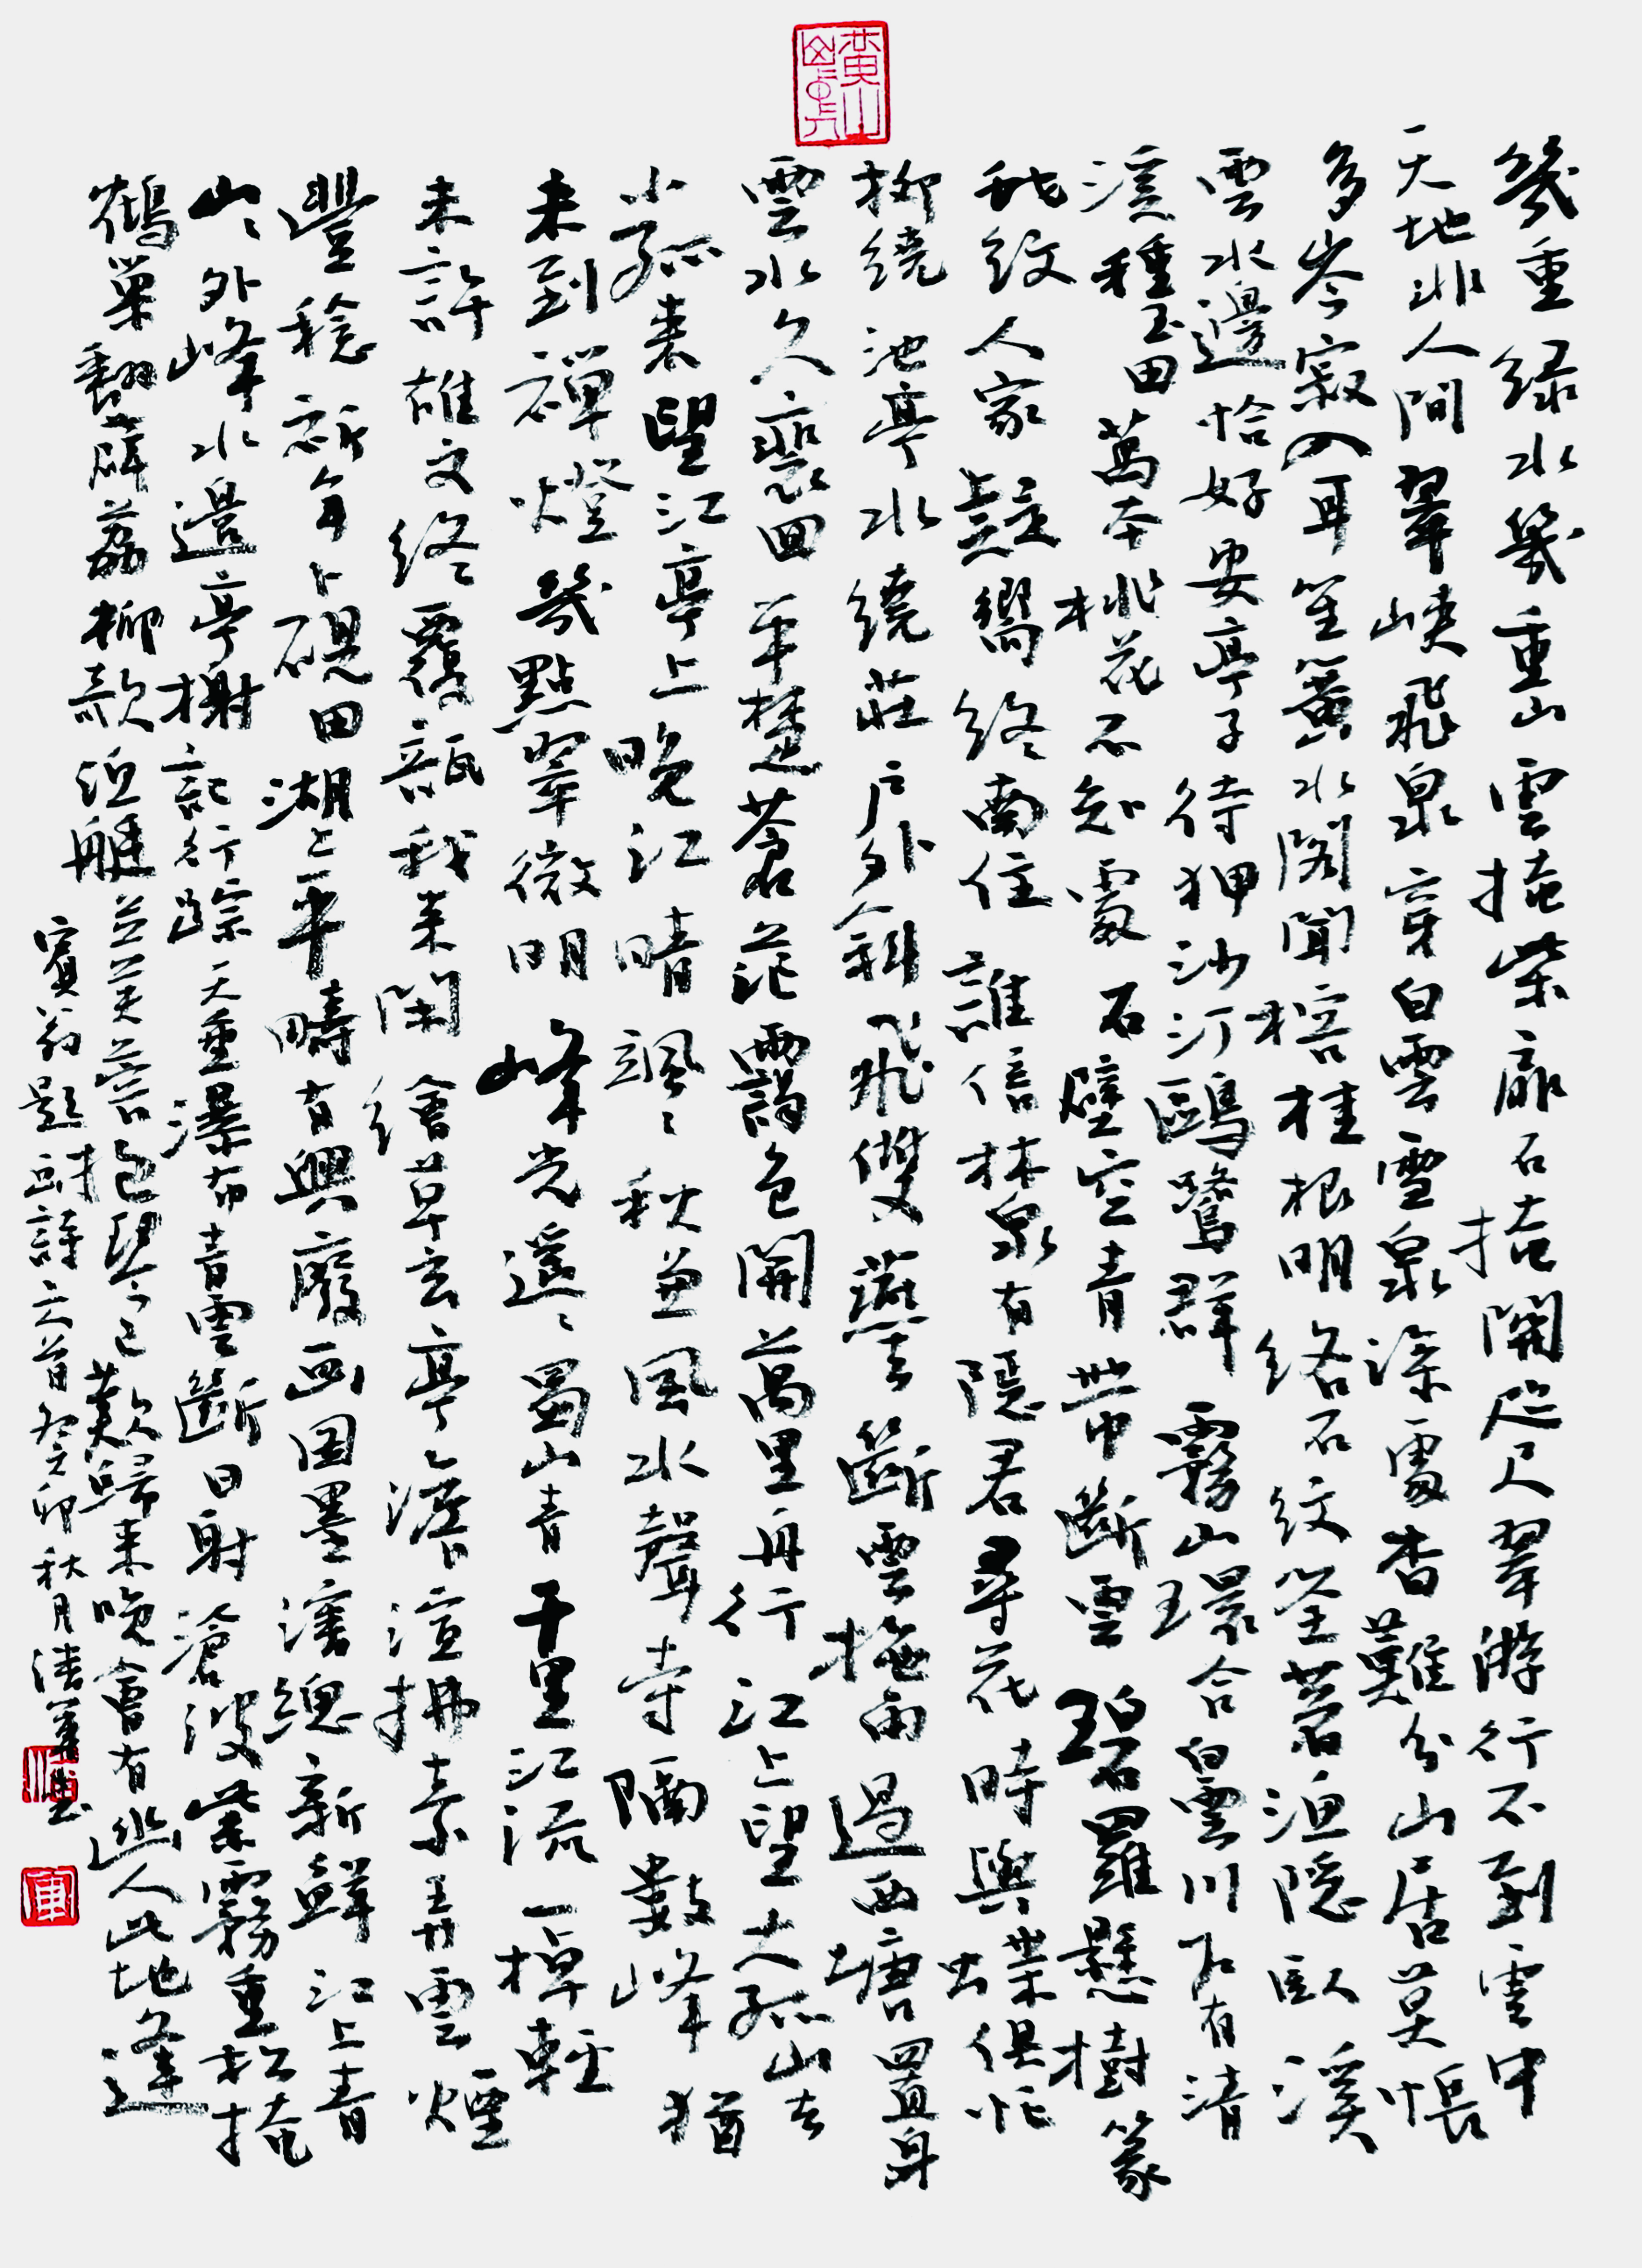 幾重綠水幾重山雲掩柴扉石掩關咫尺翠微行不到雲中
天地非人間翠峽飛泉穿白雲雪泉深處杳難分山居莫悵
多岑寂入耳笙簧水閣聞榕桂根明絡石紋坐著漁隱臥溪
雲水邊恰好安亭子待狎沙汀鷗鷺群霧山環合白雲川下有清
溪種玉田萬本桃花不知處石壁空青帶斷雲碧羅懸樹篆
紋人家疑隔終南住誰信林泉有隱君尋花時與蝶俱忙
柳繞池亭水繞莊戶外斜飛雙燕去斷雲拖雨過西塘置身
雲水久裴回平楚蒼茫靄色開萬里舟行江上望大孤山去
小孤來望江亭上晚江晴颯颯秋兼風水聲寺隔數峰猶
未到禪燈幾點翠微明峰光遙遙蜀山青千里江流一棹輕
未許雄文終覆瓿我來閑繪草玄亭澹渲拂素弄雲煙
豐稔祈年卜硯田湖上平疇有興廢畫圖墨瀋總新鮮江上青
山山外峰水邊亭榭記行踪天垂瀑布青雲斷日射滄波紫霧重松掩
鶴巢翻薜荔柳款漁艇立芙蓉抱琴已歎歸來晚會有幽人此地逢
賓翁題畫詩六首癸卯秋月漢軍書